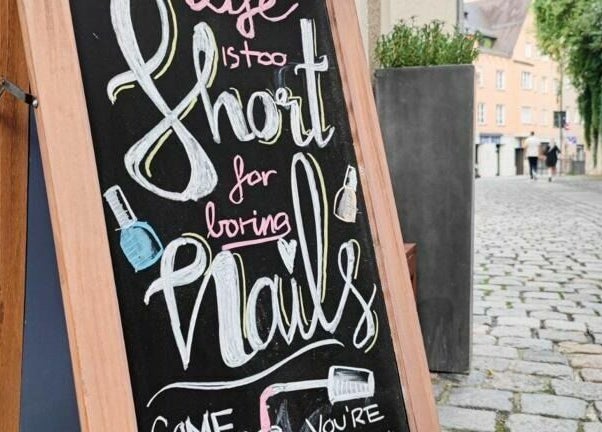 Life
is too
Short
for
boring
Nails
COME
YOU'RE